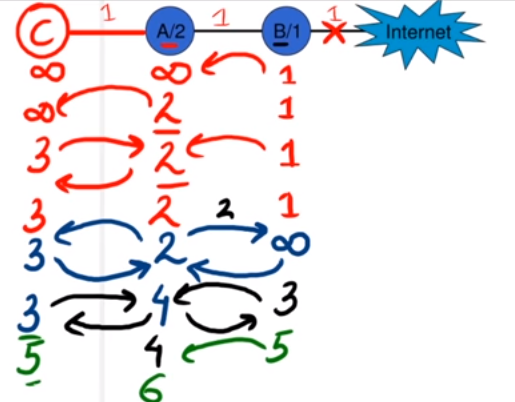 1 1 1
C A/2 B/1 Internet
∞ ∞ 1
∞ 2 1
3 2 1
3 2 2 1
3 2 ∞
3 4 3
5 4 5
6